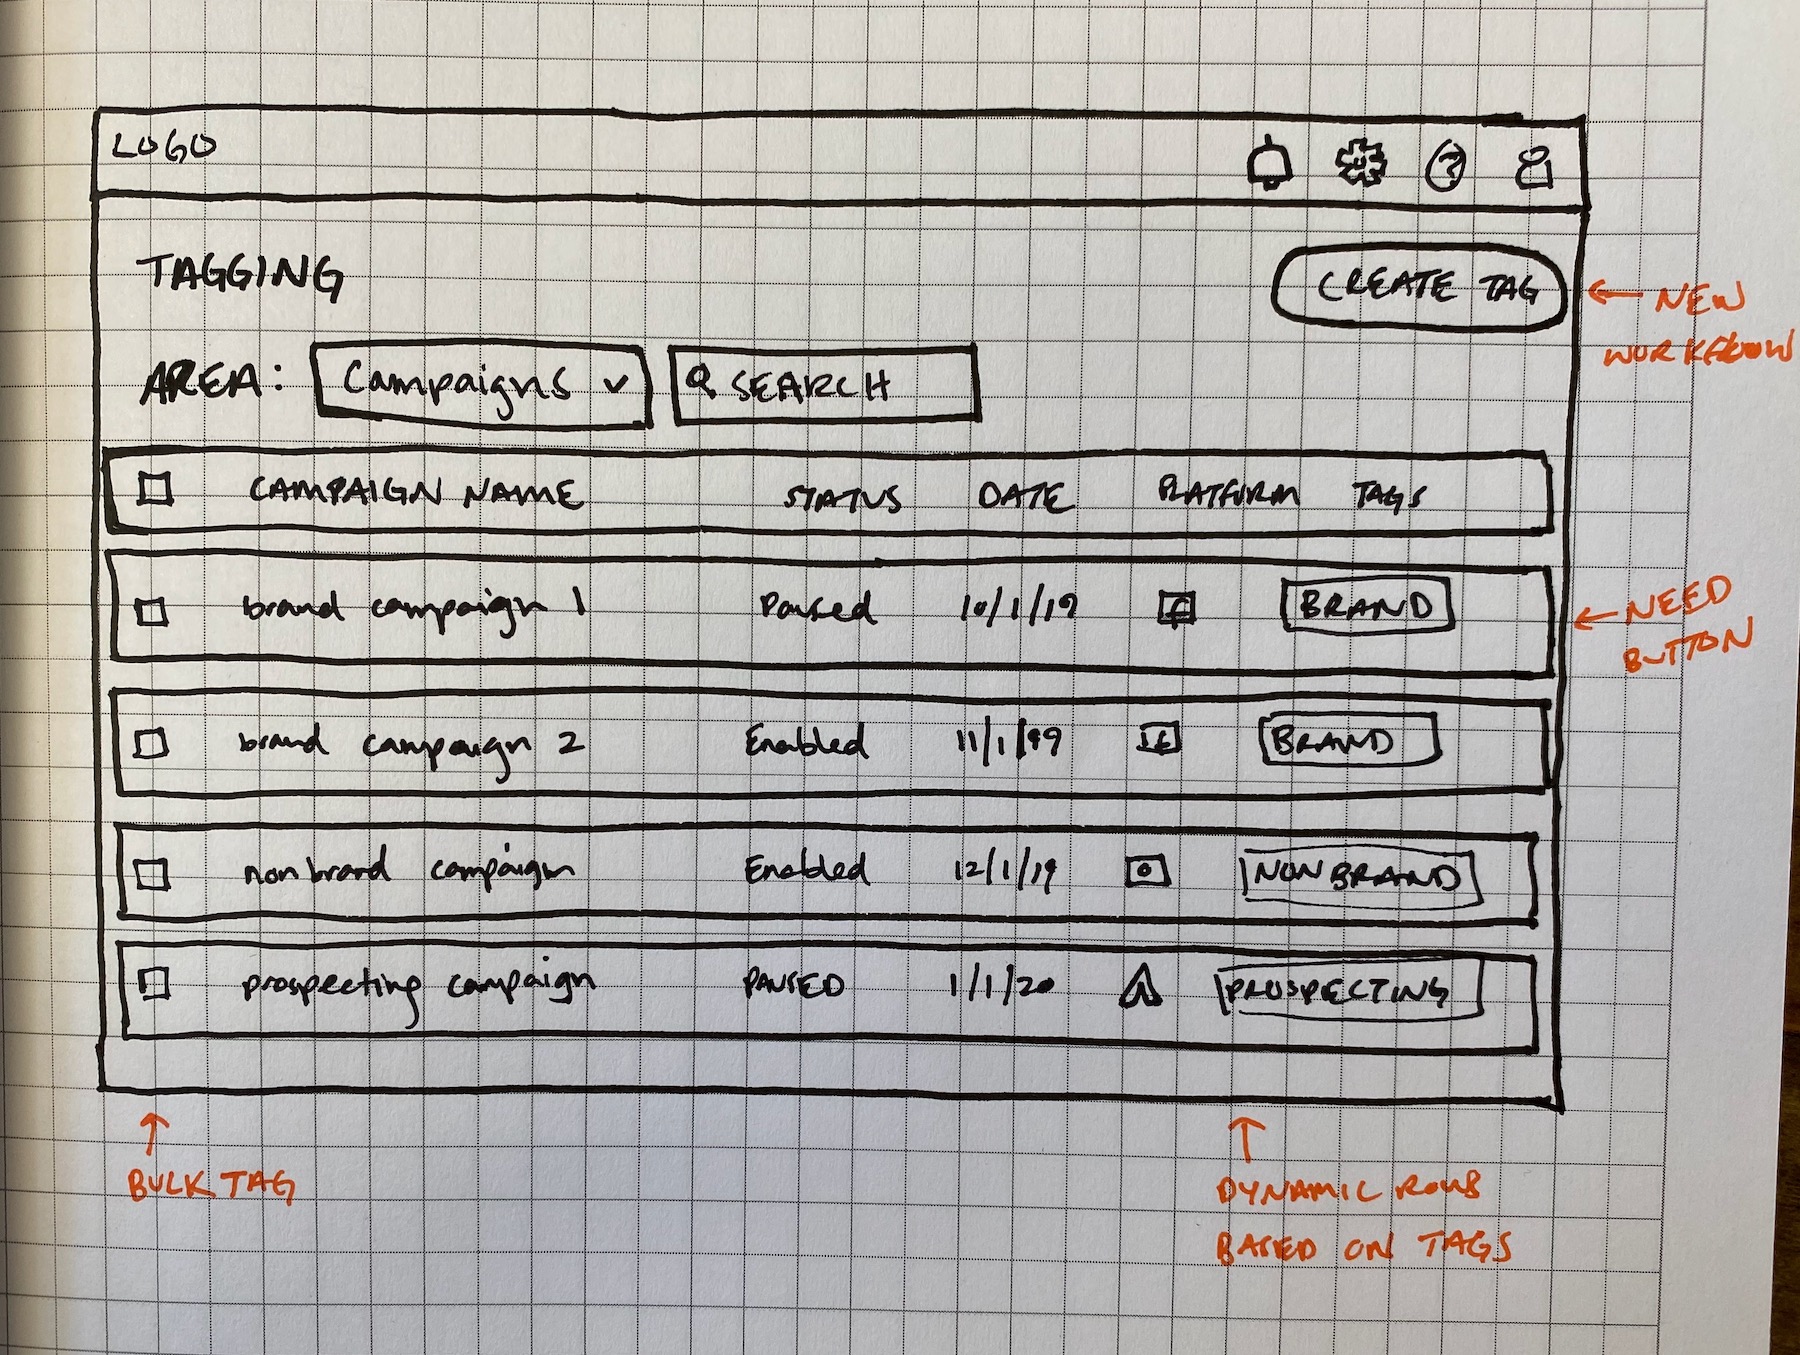 LOGO
TAGGING
CREATE TAG
← NEW
WORKFLOW
AREA: Campaigns SEARCH
CAMPAIGN NAME STATUS DATE PLATFORM TAGS
brand campaign 1 Paused 10/1/19 f BRAND
← NEED
BUTTON
brand campaign 2 Enabled 11/1/99 f BRAND
nonbrand campaign Enabled 12/1/19 NONBRAND
prospecting campaign PAUSED 1/1/20 PROSPECTING
BULK TAG
DYNAMIC ROWS
BASED ON TAGS